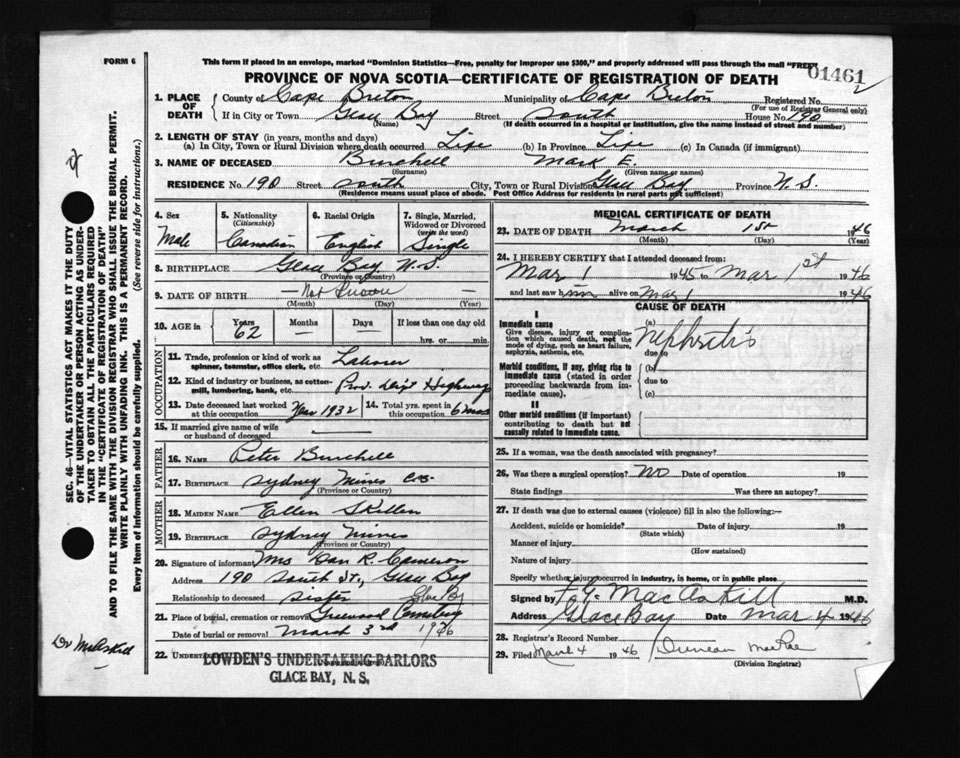 FORM 6
This form if placed in an envelope, marked "Dominion Statistics—Free, penalty for improper use $300," and properly addressed will pass through the mail "FREE"
PROVINCE OF NOVA SCOTIA—CERTIFICATE OF REGISTRATION OF DEATH
01461
2
1. PLACE OF DEATH County of Cape Breton Municipality of Cape Breton Registered No.
(For use of Registrar General only)
If in City or Town Glace Bay Street South House No. 190
(Name) (If death occurred in a hospital or institution, give the name instead of street and number)
2. LENGTH OF STAY (in years, months and days)
(a) In City, Town or Rural Division where death occurred Life (b) In Province Life (c) In Canada (if immigrant)
3. NAME OF DECEASED Burchell Mark E.
(Surname) (Given name or names)
RESIDENCE No. 190 Street South City, Town or Rural Division Glace Bay Province N.S.
(Residence means usual place of abode. Post Office Address for residents in rural parts not sufficient)
4. Sex Male
5. Nationality (Citizenship) Canadian
6. Racial Origin English
7. Single, Married, Widowed or Divorced (write the word) Single
8. BIRTHPLACE Glace Bay N.S.
(Province or Country)
9. DATE OF BIRTH — Not Known —
(Month) (Day) (Year)
10. AGE in Years 62 Months — Days — If less than one day old
hrs. or min.
OCCUPATION
11. Trade, profession or kind of work as spinner, teamster, office clerk, etc. Laborer
12. Kind of industry or business, as cotton-mill, lumbering, bank, etc. Prov. Dept Highway
13. Date deceased last worked at this occupation Year 1932
14. Total yrs. spent in this occupation 6 mos
15. If married give name of wife or husband of deceased —
FATHER
16. NAME Peter Burchell
17. BIRTHPLACE Sydney Mines C.B.
(Province or Country)
MOTHER
18. MAIDEN NAME Ellen Skillen
19. BIRTHPLACE Sydney Mines
(Province or Country)
20. Signature of informant Mrs Dan R. Cameron
Address 190 South St, Glace Bay
Relationship to deceased Sister
21. Place of burial, cremation or removal Greenwood Cemetery Glace B
Date of burial or removal March 3rd 1946
22. UNDERTAKER
LOWDEN'S UNDERTAKING PARLORS
GLACE BAY, N. S.
MEDICAL CERTIFICATE OF DEATH
23. DATE OF DEATH March 1st 1946
(Month) (Day) (Year)
24. I HEREBY CERTIFY that I attended deceased from:
Mar 1 1945 to Mar 1st 1946
and last saw him alive on Mar 1 1946
CAUSE OF DEATH
I
Immediate cause
Give disease, injury or complication which caused death, not the mode of dying, such as heart failure, asphyxia, asthenia, etc.
(a) Nephritis
due to
Morbid conditions, if any, giving rise to immediate cause (stated in order proceeding backwards from immediate cause).
(b)
due to
(c)
II
Other morbid conditions (if important) contributing to death but not causally related to immediate cause.
25. If a woman, was the death associated with pregnancy?
26. Was there a surgical operation? No Date of operation 19
State findings Was there an autopsy?
27. If death was due to external causes (violence) fill in also the following:—
Accident, suicide or homicide? Date of injury 19
(State which)
Manner of injury
(How sustained)
Nature of injury
Specify whether injury occurred in industry, in home, or in public place
Signed by MacAskill M.D.
Address Glace Bay Date Mar 4 1946
28. Registrar's Record Number
29. Filed March 4 1946 Duncan MacRae
(Division Registrar)
SEC. 46—VITAL STATISTICS ACT MAKES IT THE DUTY
OF THE UNDERTAKER OR PERSON ACTING AS UNDER-
TAKER TO OBTAIN ALL THE PARTICULARS REQUIRED
IN THE "CERTIFICATE OF REGISTRATION OF DEATH" AND TO FILE THE SAME WITH THE DIVISION REGISTRAR WHO SHALL ISSUE THE BURIAL PERMIT.
WRITE PLAINLY WITH UNFADING INK. THIS IS A PERMANENT RECORD.
Every item of information should be carefully supplied. (See reverse side for instructions.)
Dr McAskill